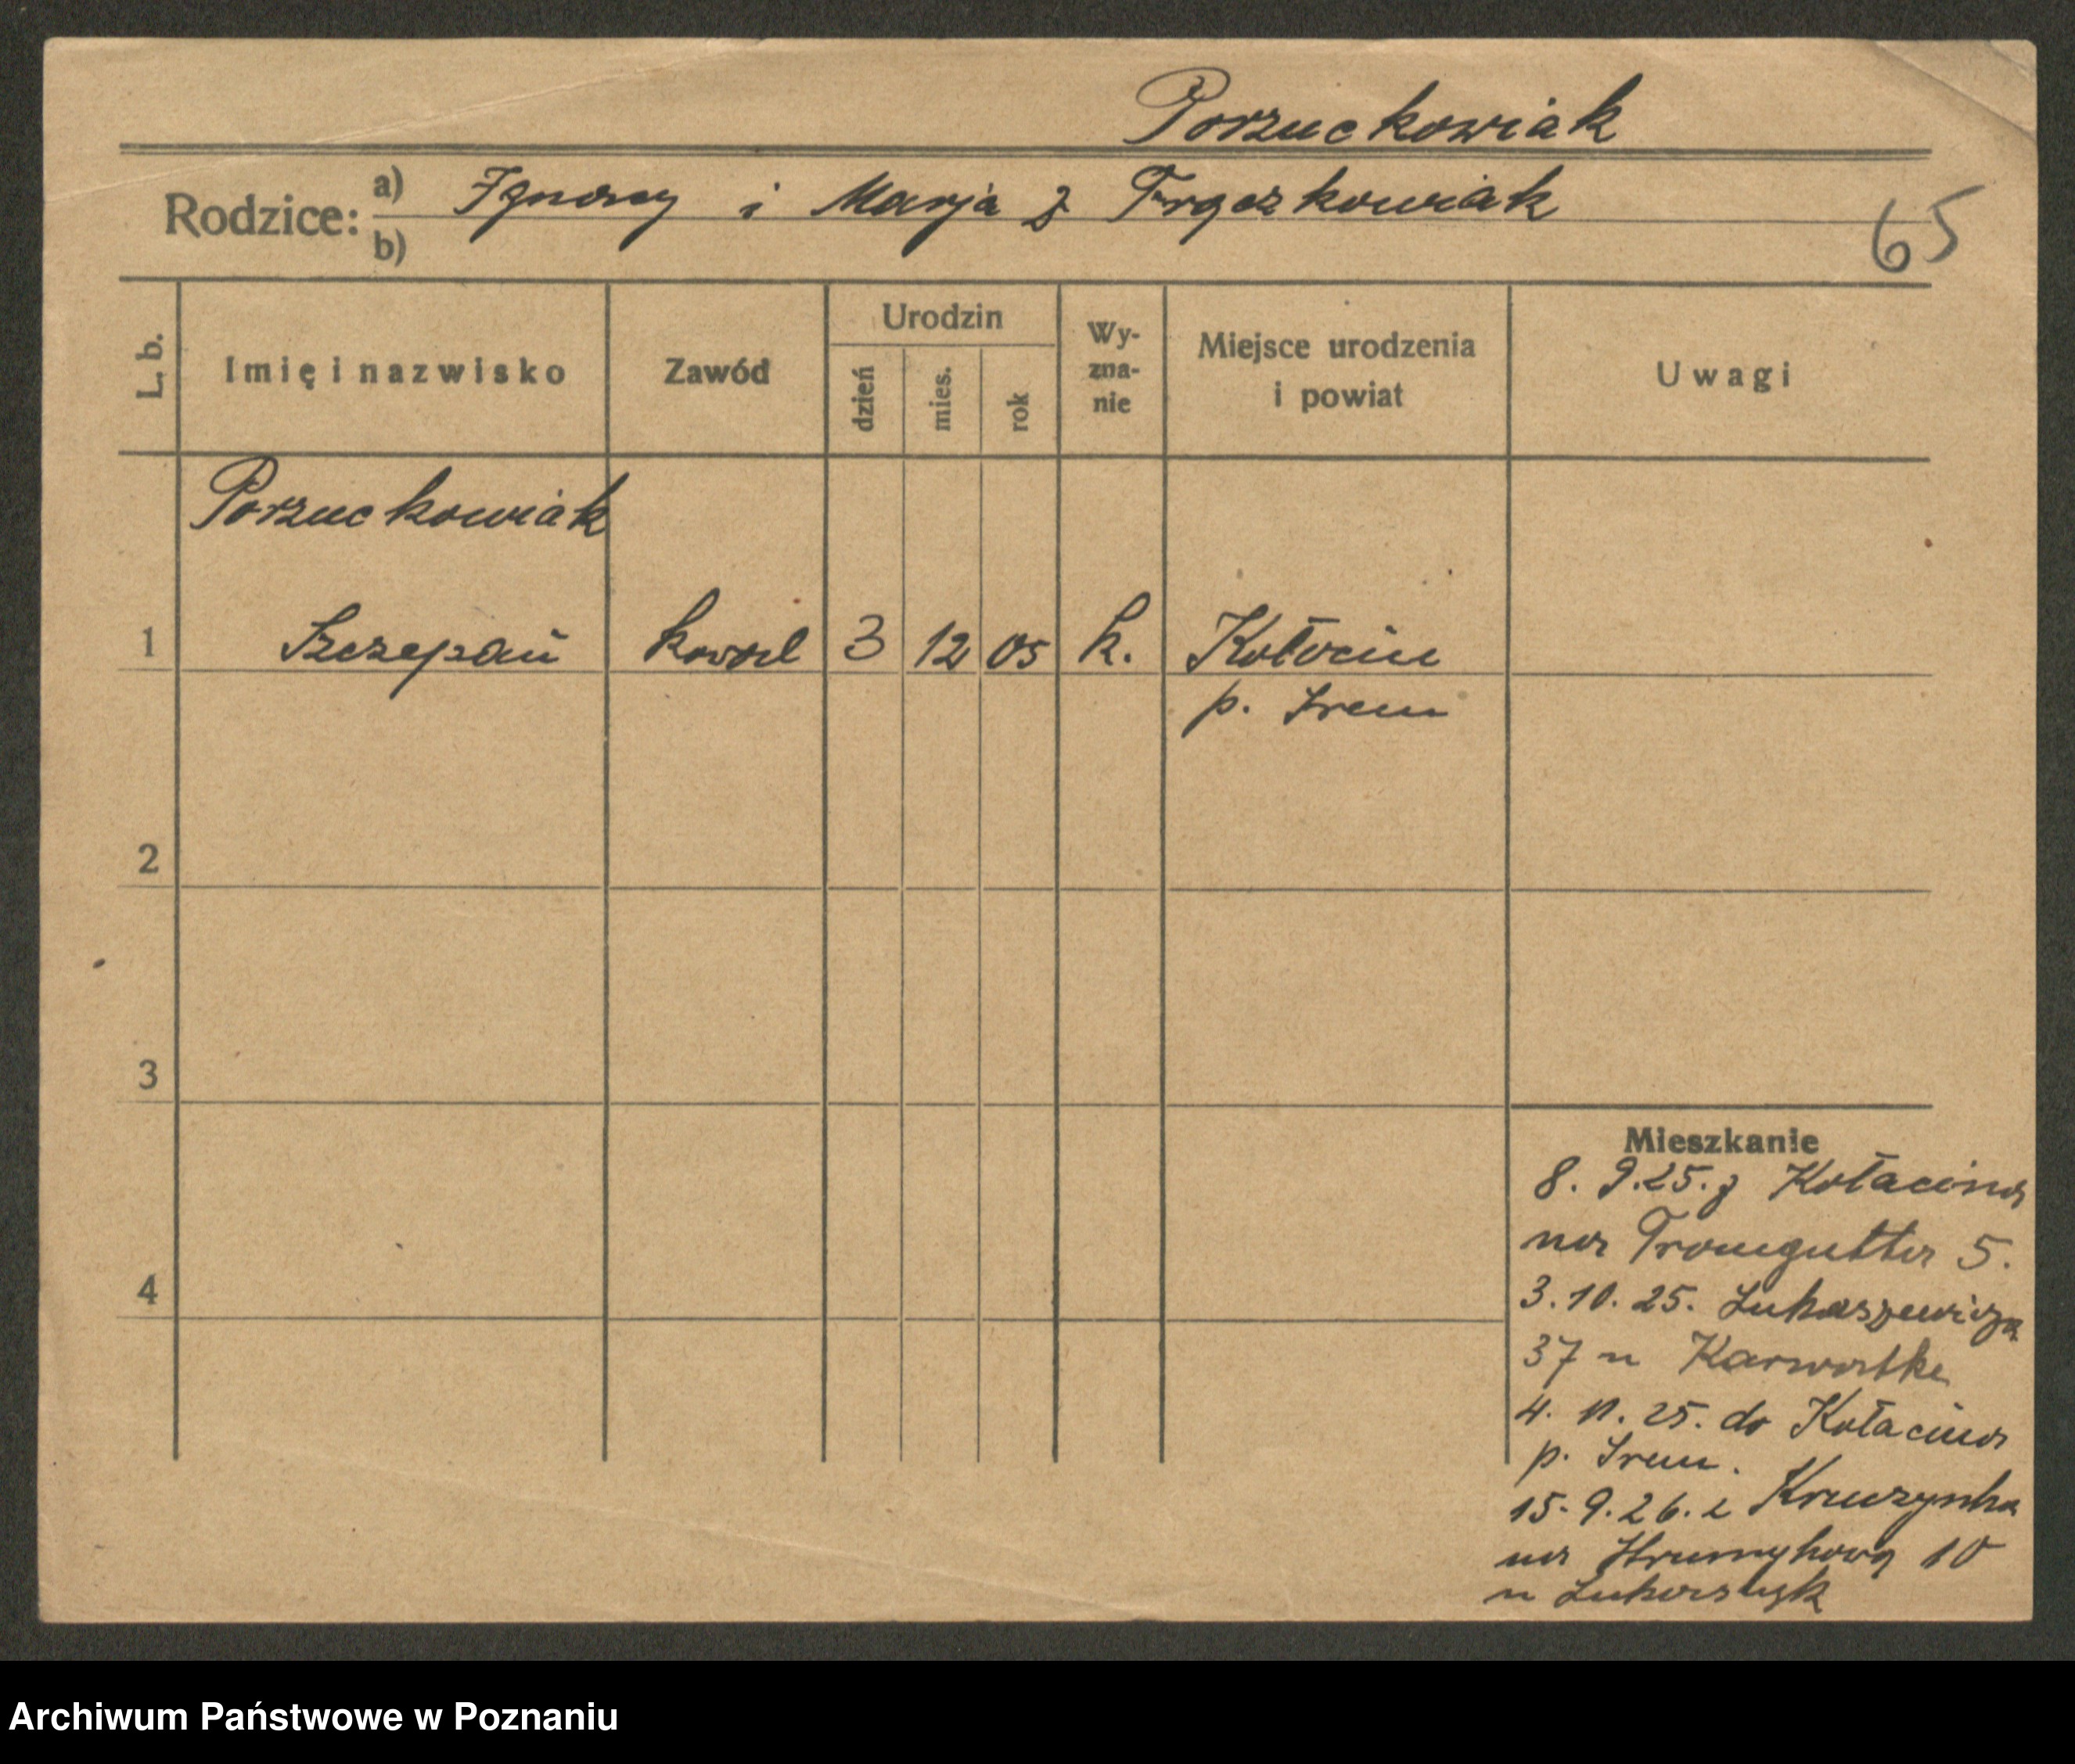 Porzuckowiak
Rodzice: a) Ignacy i Marja z Frąckowiak
b)
65
L. b.
Imię i nazwisko
Zawód
Urodzin
dzień
mies.
rok
Wy-
zna-
nie
Miejsce urodzenia
i powiat
Uwagi
Porzuckowiak
1 Szczepan kowal 3 12 05 k. Kołacin
p. Śrem
2
3
4
Mieszkanie
8. 9. 25. z Kołacina
na Traugutta 5.
3. 10. 25. Łukaszewicza
37 u
4. 11. 25. do Kołacina
p. Śrem.
15. 9. 26. z
na Strumykową 10
u Łukaszyk
Archiwum Państwowe w Poznaniu